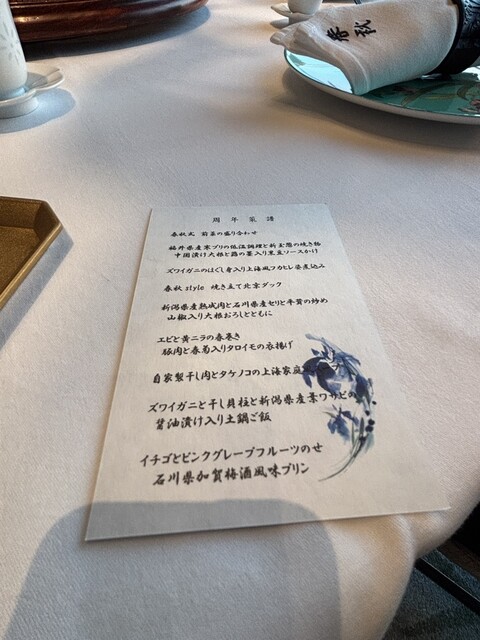 春秋
周年菜譜
春秋式 前菜の盛り合わせ
福井県産寒ブリの低温調理と新玉葱の焼き物
中国漬け大根と蕗の薹入り黒豆ソースかけ
ズワイガニのほぐし身入り上海風フカヒレ姿煮込み
春秋 style 焼き立て北京ダック
新潟県産熟成肉と石川県産セリと牛蒡の炒め
山椒入り大根おろしとともに
エビと黄ニラの春巻き
豚肉と春菊入りタロイモの衣揚げ
自家製干し肉とタケノコの上海家庭
ズワイガニと干し貝柱と新潟県産葉ワサビの
醤油漬け入り土鍋ご飯
イチゴとピンクグレープフルーツのせ
石川県加賀梅酒風味プリン